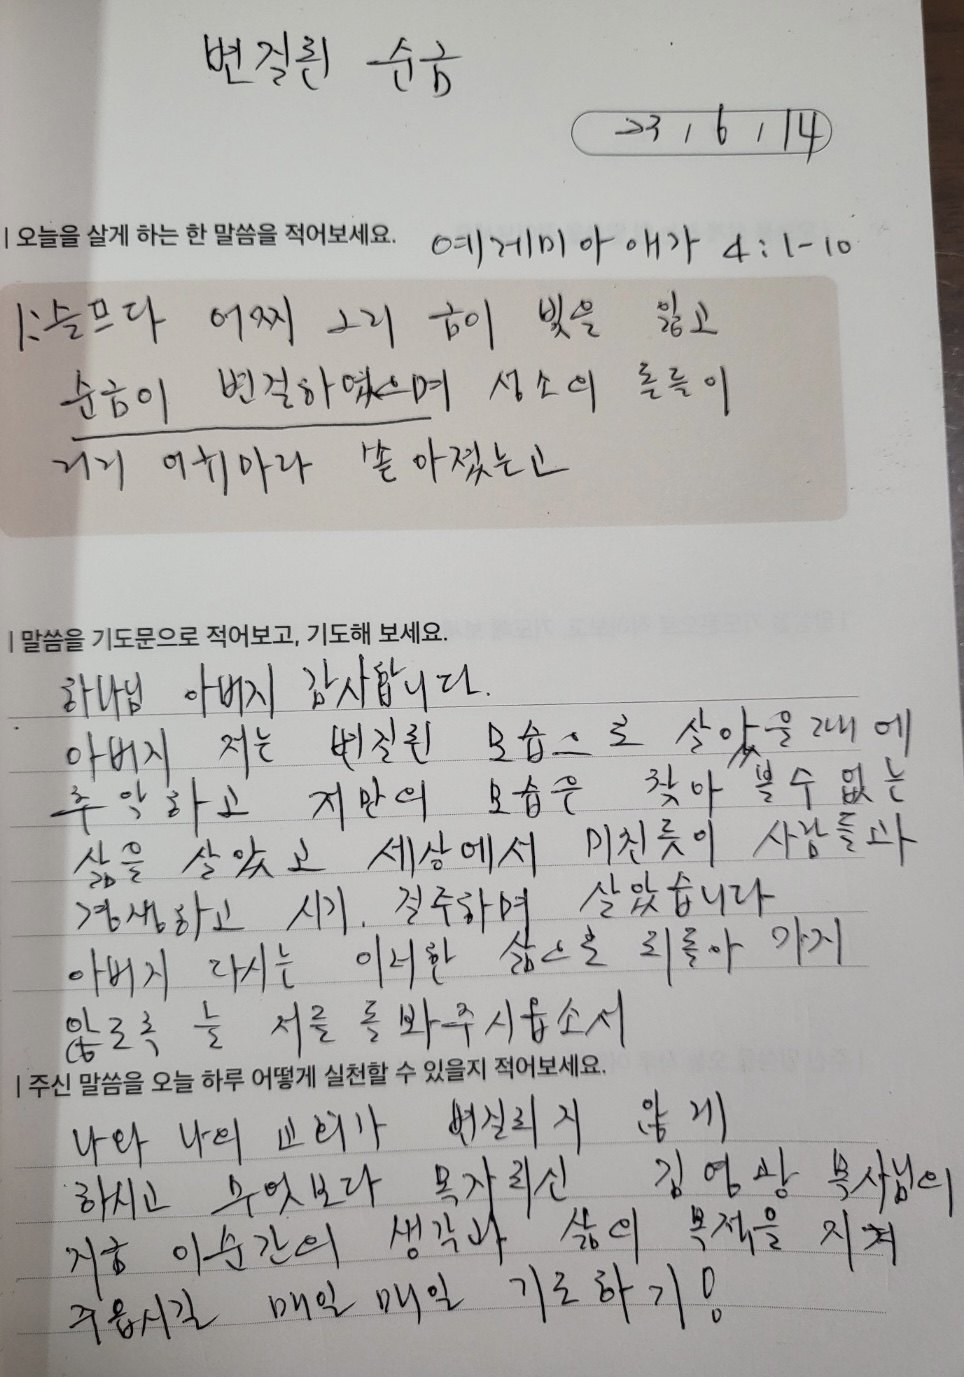 변질된 순금
23, 6, 14
| 오늘을 살게 하는 한 말씀을 적어보세요.
예레미아 애가 4:1-10
1: 슬프다 어찌 그리 금이 빛을 잃고
순금이 변질하였으며 성소의 돌들이
거리 어귀마다 쏟아졌는고
| 말씀을 기도문으로 적어보고, 기도해 보세요.
하나님 아버지 감사합니다.
아버지 저는 변질된 모습으로 살았을때에
추악하고 저만의 모습은 찾아 볼수 없는
삶을 살았고 세상에서 미친듯이 사람들과
경쟁하고 시기, 질투하며 살았습니다
아버지 다시는 이러한 삶으로 되돌아 가지
않도록 늘 저를 돌봐주시옵소서
| 주신 말씀을 오늘 하루 어떻게 실천할 수 있을지 적어보세요.
나와 나의 교회가 변질되지 않게
하시고 무엇보다 목자되신 김영광 목사님의
지금 이순간의 생각과 삶의 목적을 지켜
주옵시길 매일매일 기도하기!